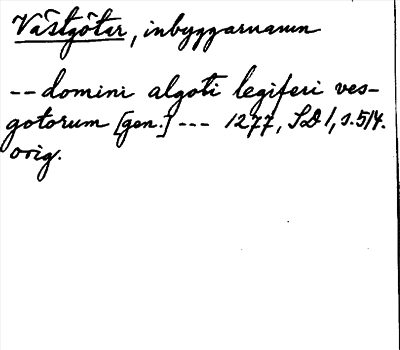 Västgötar, inbyggarnamn
-- domini algoti legiferi ves-
gotorum [gen.] --- 1277, SD 1, s. 514.
orig.